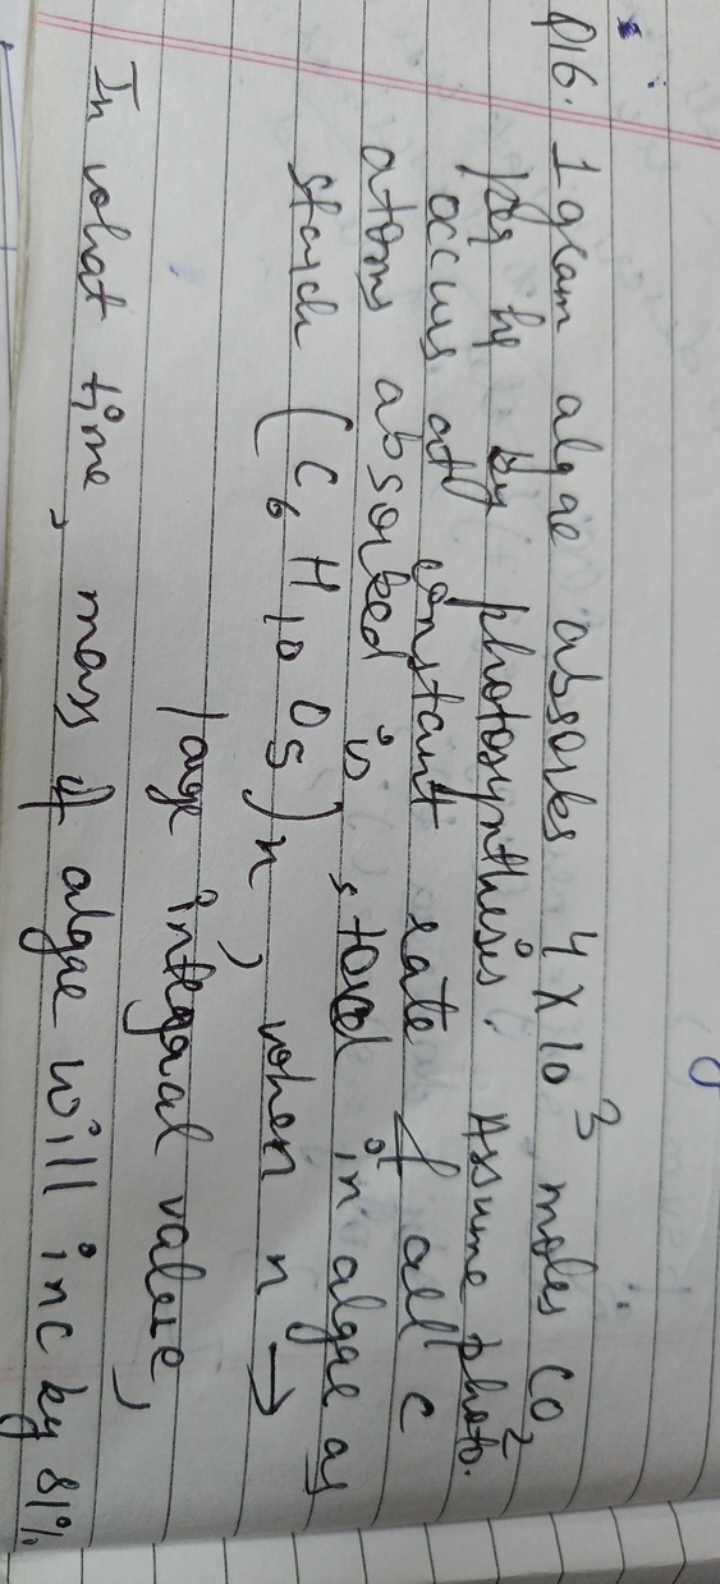 Q16. 1 gram algae absorbs 4 x 10³ moles CO₂
per hr by photosynthesis. Assume photo.
occurs at constant rate & all C
atoms absorbed is stored in algae as
starch (C₆H₁₀O₅)n, when n →
large integral value,
In what time, mass of algae will inc by 81%